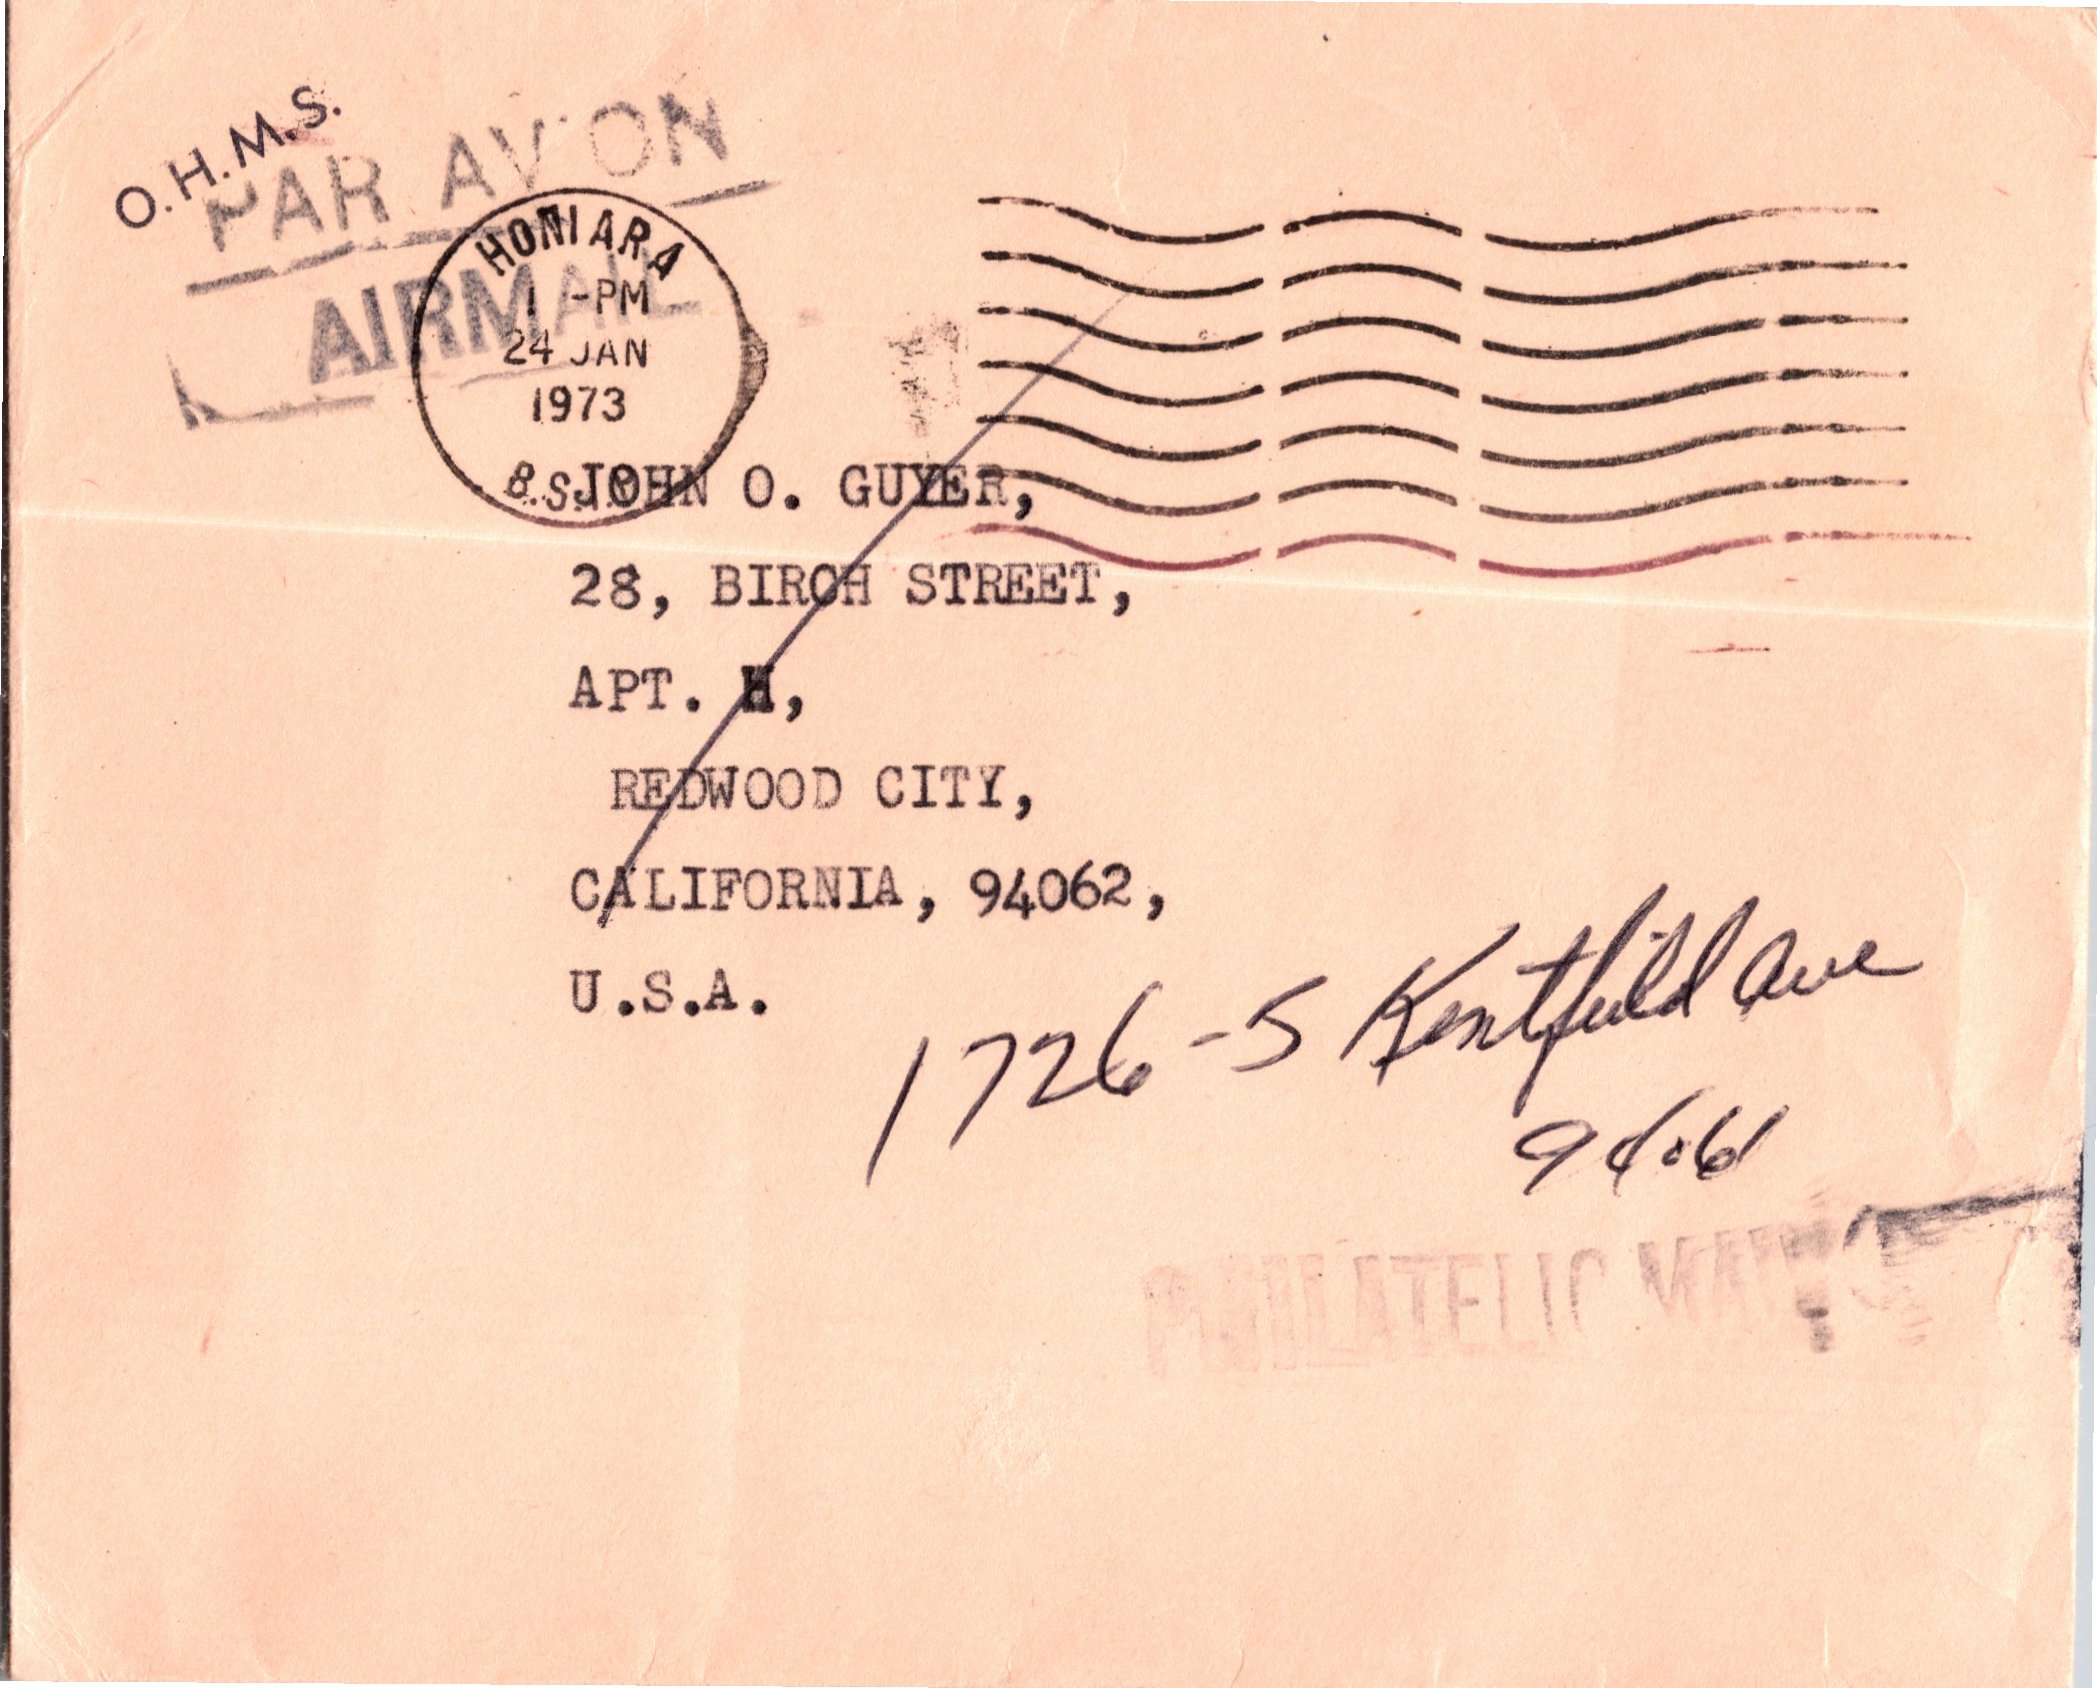 O.H.M.S.
PAR AVION
AIRMAIL
HONIARA
1 -PM
24 JAN
1973
B.S.I.P.
JOHN O. GUYER,
28, BIRCH STREET,
APT. H,
REDWOOD CITY,
CALIFORNIA, 94062,
U.S.A.
1726-5 Kentfield Ave
94061
PHILATELIC MAIL